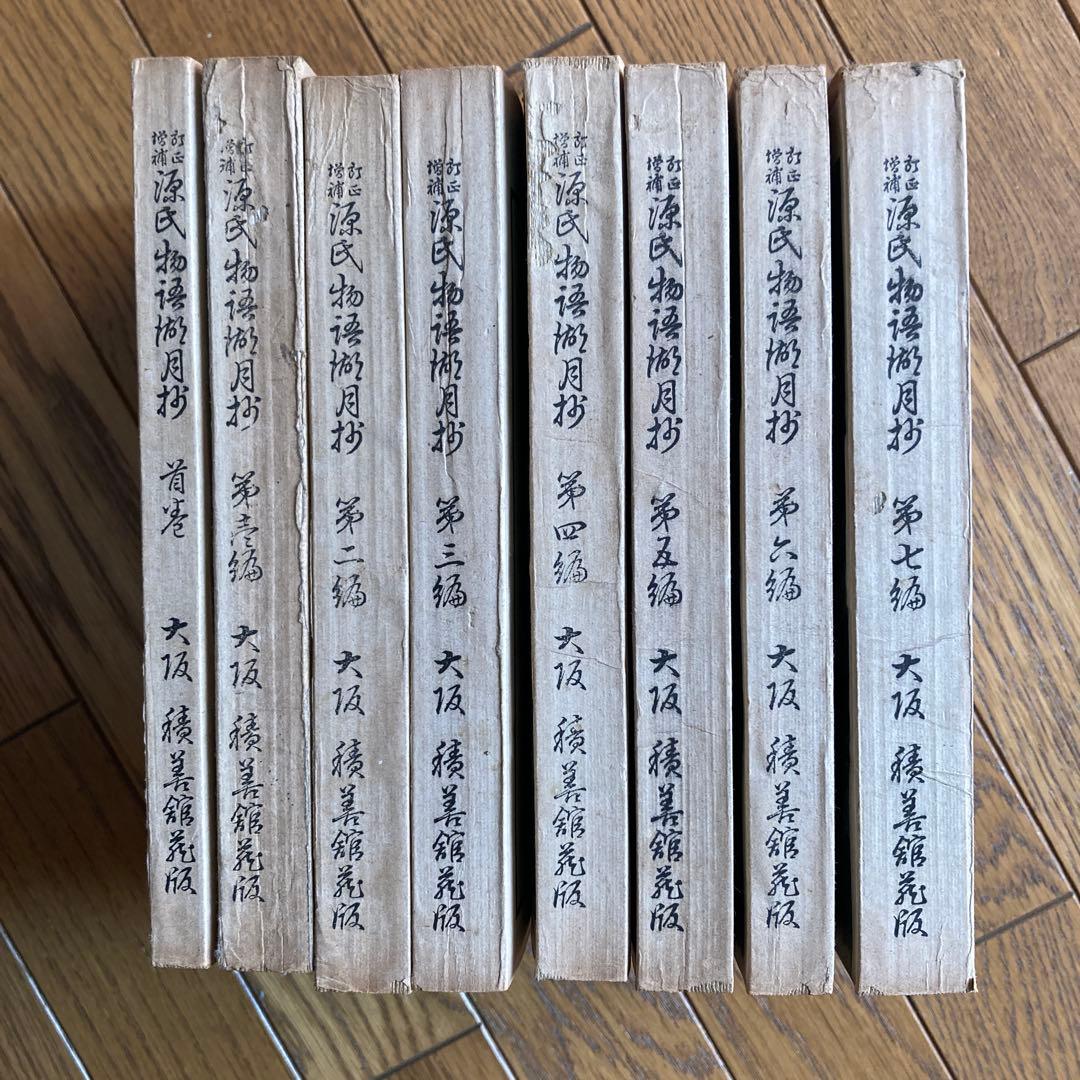 訂正増補 源氏物語湖月抄 首巻 大阪 積善館蔵版
訂正増補 源氏物語湖月抄 第壱編 大阪 積善館蔵版
訂正増補 源氏物語湖月抄 第二編 大阪 積善館蔵版
訂正増補 源氏物語湖月抄 第三編 大阪 積善館蔵版
訂正増補 源氏物語湖月抄 第四編 大阪 積善館蔵版
訂正増補 源氏物語湖月抄 第五編 大阪 積善館蔵版
訂正増補 源氏物語湖月抄 第六編 大阪 積善館蔵版
訂正増補 源氏物語湖月抄 第七編 大阪 積善館蔵版